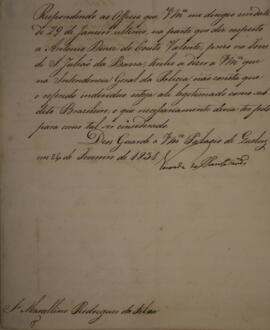 Respondendo ao Officio que VMce me dirigio em data
de 29 de Janeiro ultimo, na parte que diz respeito
a Antonio Diniz do Couto Valente, preso na Torre
de S. Julião da Barra, tenho a dizer a VMce que
na Intendencia Geral da Policia não consta que
o referido individuo esteja alli legitimado como sub
dito Brasileiro, o que necessariamente devia ter feito
para como tal ser considerado.
Deos Guarde a VMce Palacio de Queluz
em 26 de Fevereiro de 1831
Snr. Marcellino Rodrigues da Silva